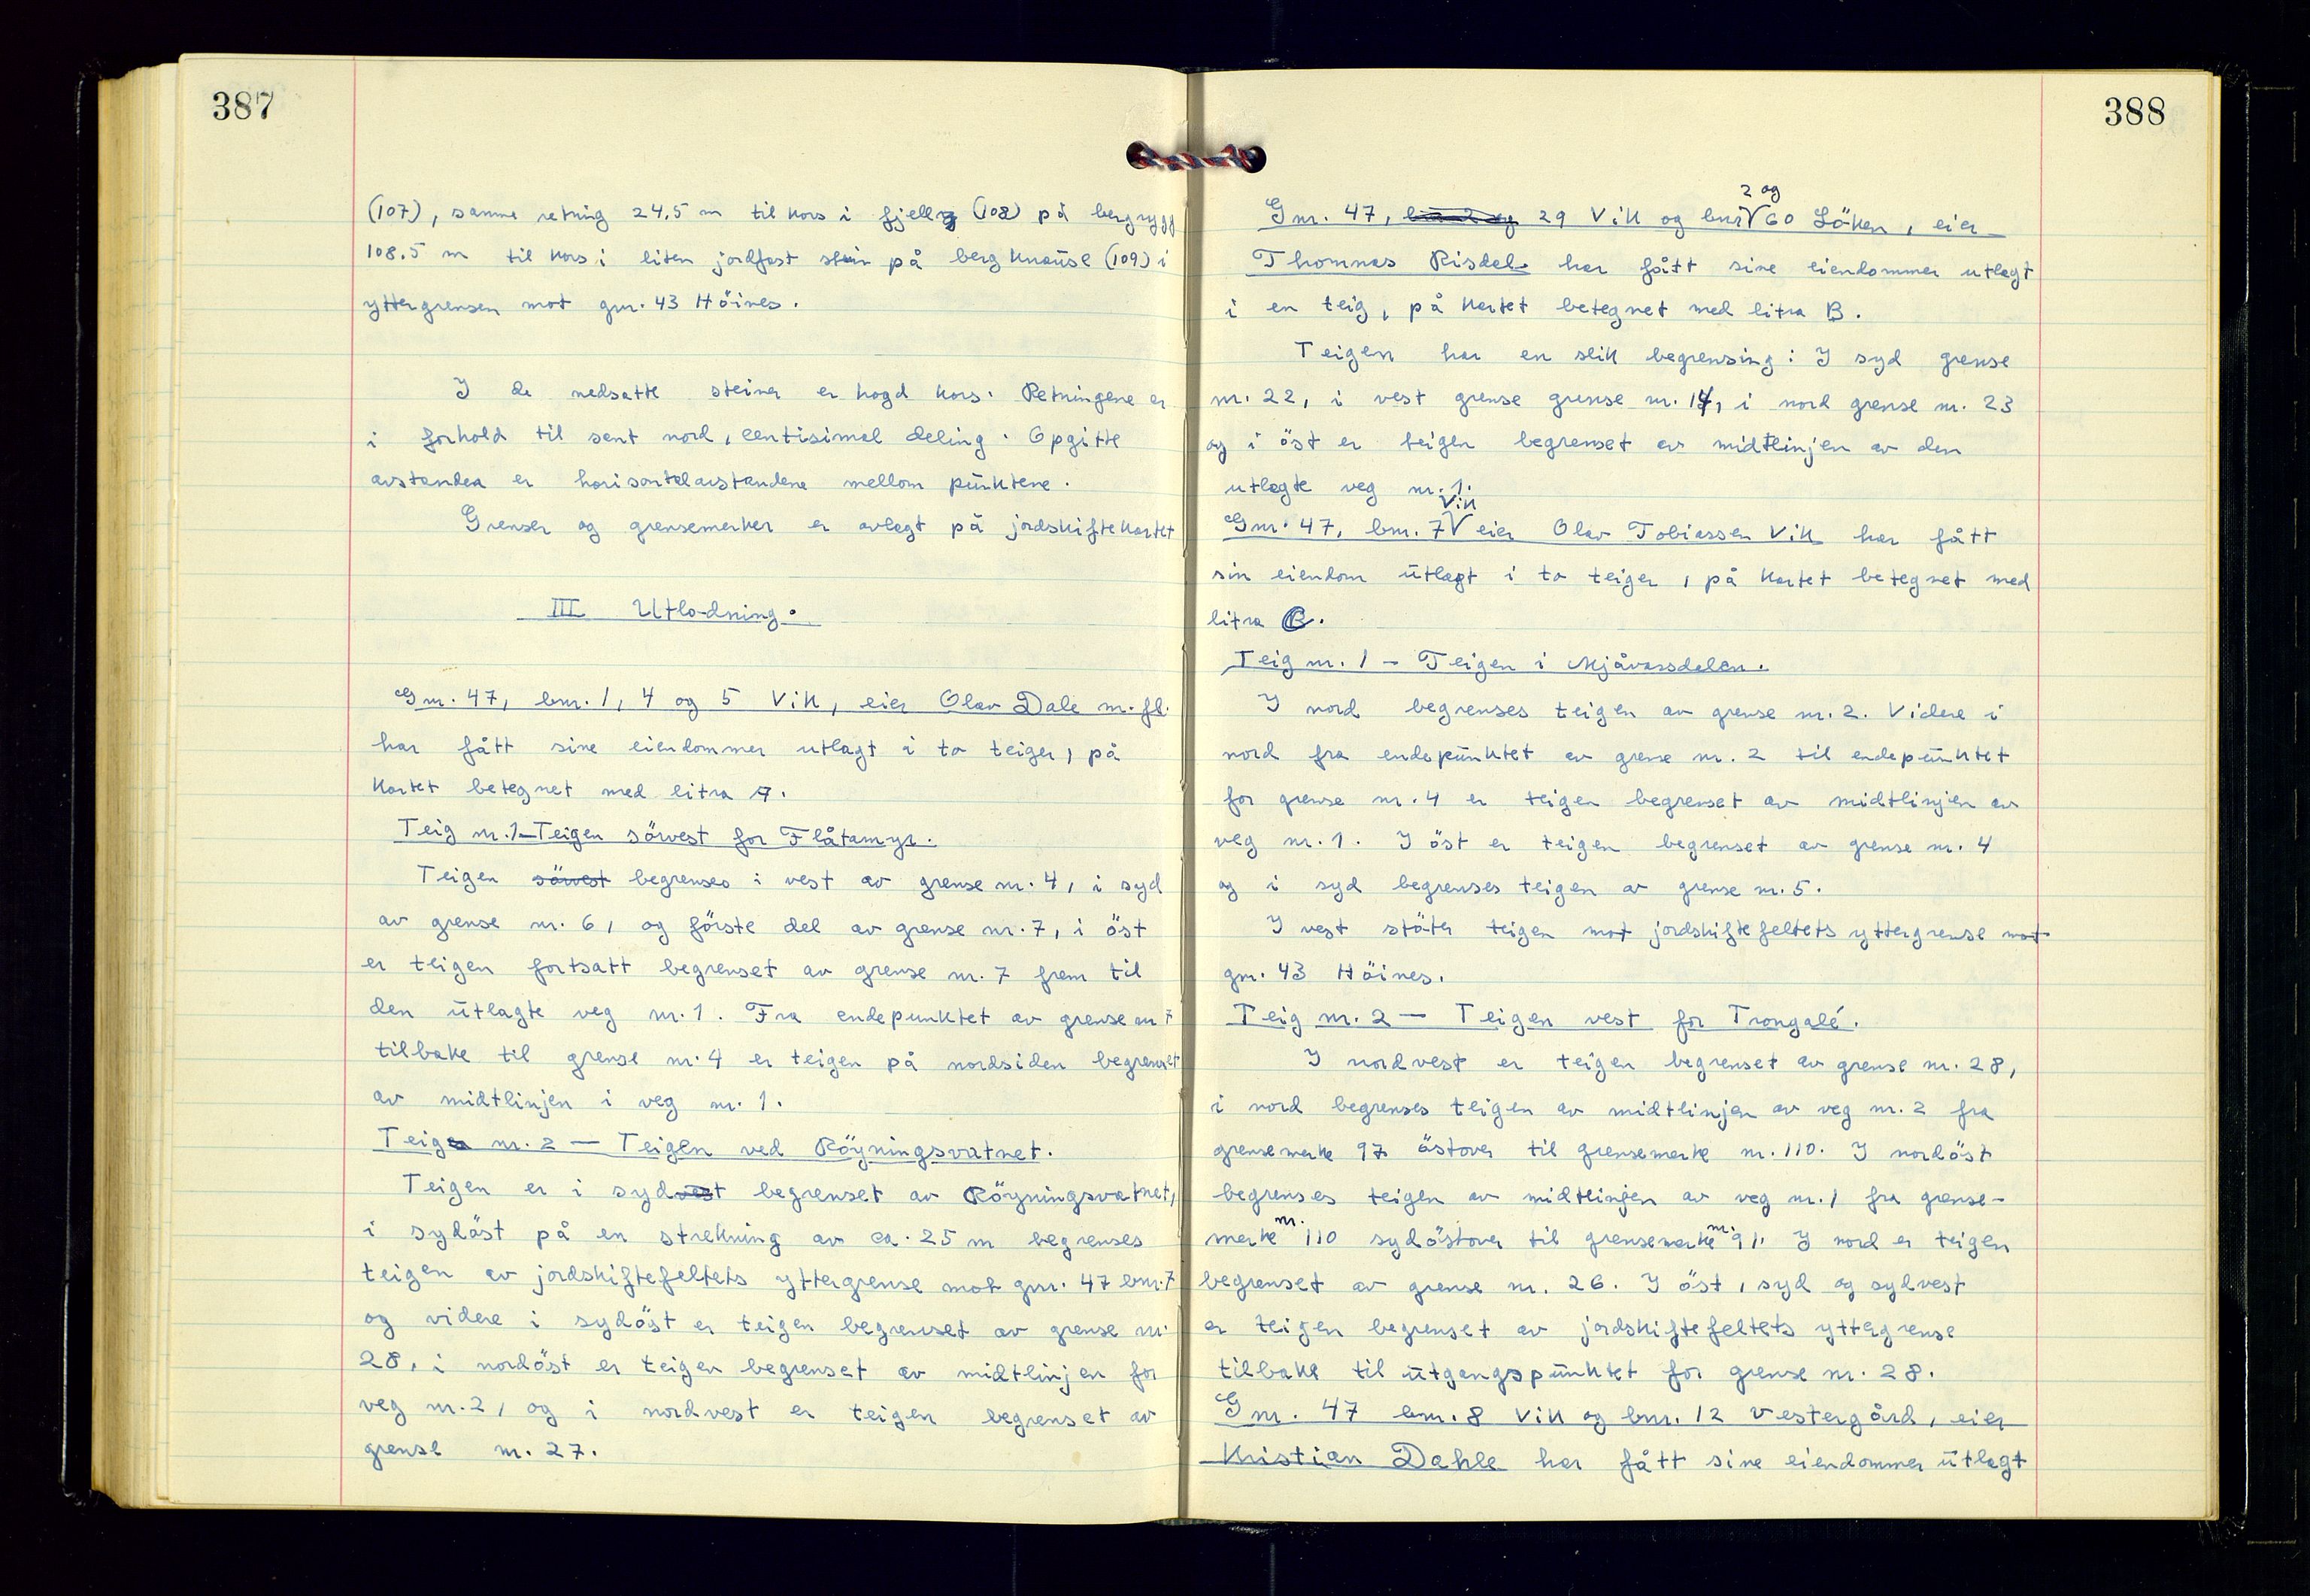 387
(107), samme retning 24.5 m til kors i fjell (108) på bergrygg
108.5 m til kors i liten jordfast stein på bergknause (109) i
yttergrensen mot gnr. 43 Höines.
I de nedsatte steiner er hogd kors. Retningene er
i forhold til sant nord, centisimal deling. Opgitte
avstander er horisontalavstandene mellom punktene.
Grenser og grensemerker er avlagt på jordskiftekartet
III Utlodning.
Gnr. 47, bnr. 1, 4 og 5 Vik, eier Olav Dale m. fl.
har fått sine eiendommer utlagt i to teiger, på
kartet betegnet med litra A.
Teig nr. 1 – Teigen sörvest for Flåtamyr.
Teigen sörvest begrenses i vest av grense nr. 4, i syd
av grense nr. 6, og förste del av grense nr. 7, i öst
er teigen fortsatt begrenset av grense nr. 7 frem til
den utlagte veg nr. 1. Fra endepunktet av grense nr 7
tilbake til grense nr. 4 er teigen på nordsiden begrenset
av midtlinjen i veg nr. 1.
Teig nr. 2 — Teigen ved Röyningsvatnet.
Teigen er i sydvest begrenset av Röyningsvatnet,
i sydöst på en strekning av ca. 25 m begrenses
teigen av jordskiftefeltets yttergrense mot gnr. 47 bnr. 7
og videre i sydöst er teigen begrenset av grense nr
28, i nordöst er teigen begrenset av midtlinjen for
veg nr. 2, og i nordvest er teigen begrenset av
grense nr. 27.
388
2 og
Gnr. 47, bnr 2 og 29 Vik og bnr V 60 Löken, eier
Thomas Risdal har fått sine eiendommer utlagt
i en teig, på kartet betegnet med litra B.
Teigen har en slik begrensing: I syd grense
nr. 22, i vest grense grense nr. 14, i nord grense nr. 23
og i öst er teigen begrenset av midtlinjen av den
utlagte veg nr. 1.
Vik
Gnr. 47, bnr. 7 V eier Olav Tobiassen Vik har fått
sin eiendom utlagt i to teiger, på kartet betegnet med
litra C.
Teig nr. 1 – Teigen i Mjåvassdalen.
I nord begrenses teigen av grense nr. 2. Videre i
nord fra endepunktet av grense nr. 2 til endepunktet
for grense nr. 4 er teigen begrenset av midtlinjen av
veg nr. 1. I öst er teigen begrenset av grense nr. 4
og i syd begrenses teigen av grense nr. 5.
I vest stöter teigen mot jordskiftefeltets yttergrense mot
gnr. 43 Höines.
Teig nr. 2 — Teigen vest for Trongalé.
I nordvest er teigen begrenset av grense nr. 28,
i nord begrenses teigen av midtlinjen av veg nr. 2 fra
grensemerke 97 östover til grensemerke nr. 110. I nordöst
begrenses teigen av midtlinjen av veg nr. 1 fra grense-
merke nr. 110 sydöstover til grensemerke nr. 91. I nord er teigen
begrenset av grense nr. 26. I öst, syd og sydvest
er teigen begrenset av jordskiftefeltets yttergrense
tilbake til utgangspunktet for grense nr. 28.
Gnr. 47 bnr. 8 Vik og bnr. 12 Vestergård, eier
Kristian Dahle har fått sine eiendommer utlagt